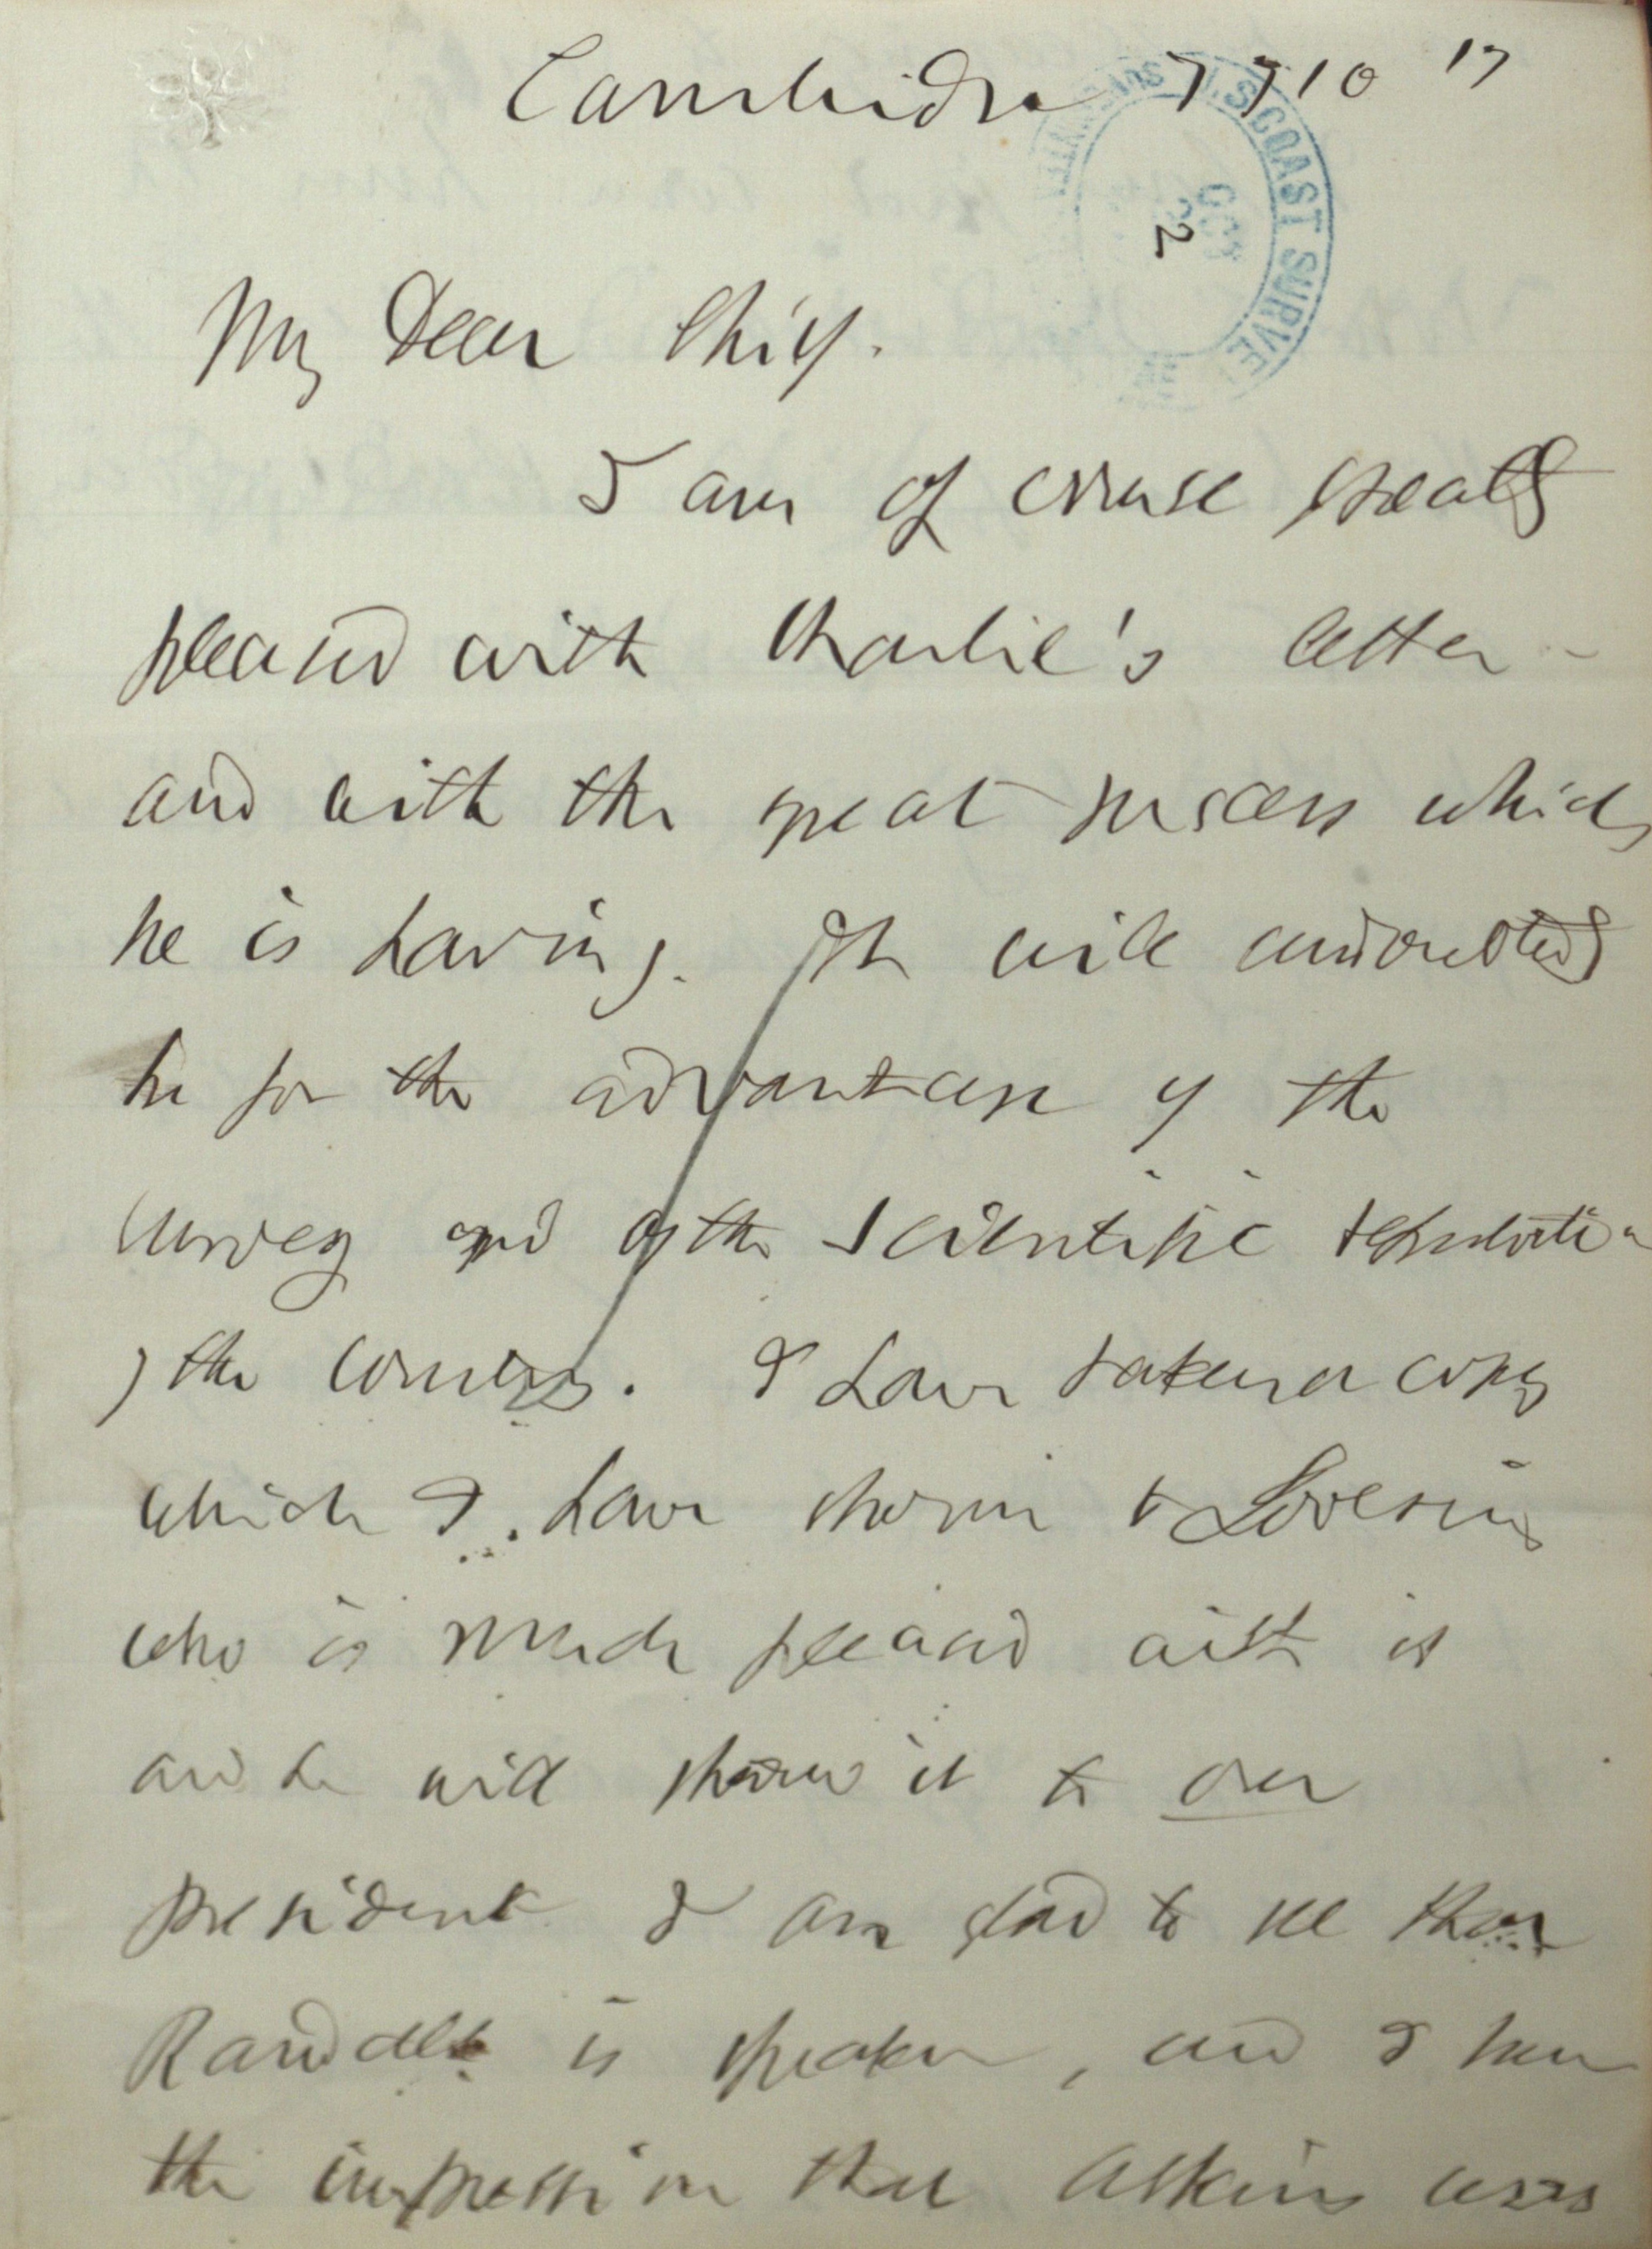 Cambridge 77 10 17
U.S. COAST SURVEY
OCT
2
My Dear Chief.
I am of course greatly
pleased with Charlie's letter -
and with the great success which
he is having. It will undoubtedly
be for the advantage of the
survey and of the scientific reputation
of the country. I have taken a copy
which I have shown to Lovering
who is much pleased with it
and he will show it to our
president I am glad to see that
Randall is speaker, and I have
the impression that Atkins was